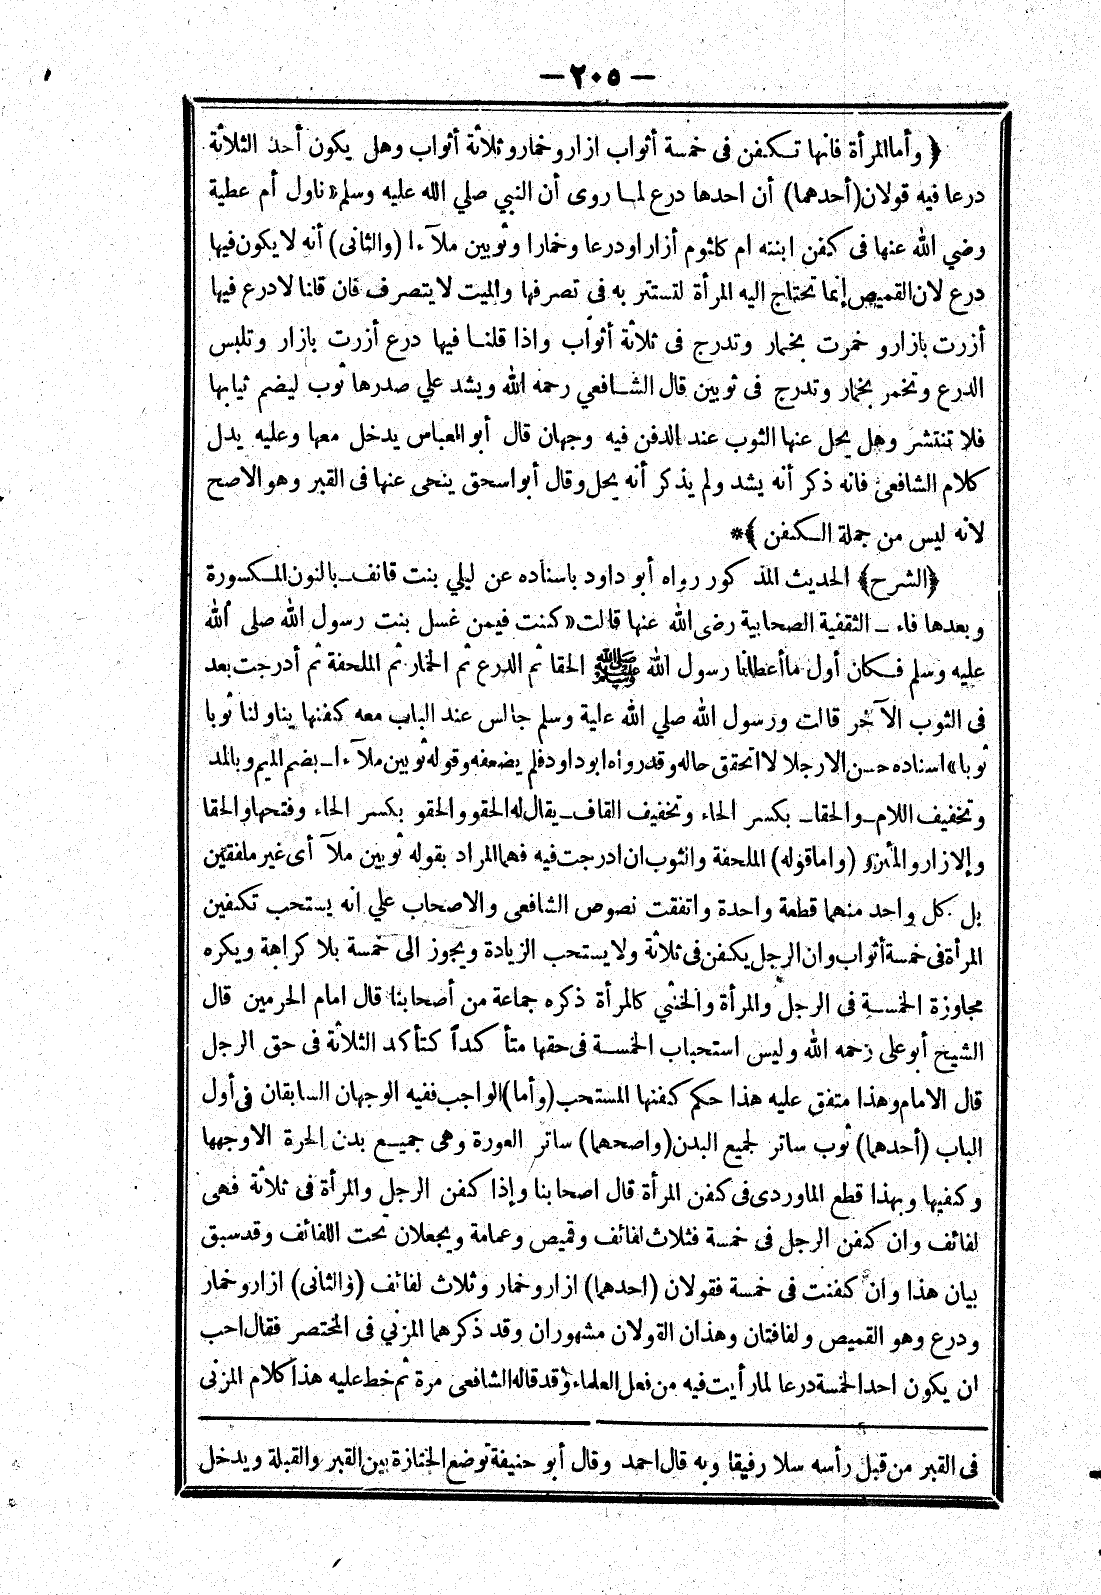 — ٢٠٥ —
﴿ وأما المرأة فانها تـكفن فى خمسة أثواب ازار وخمار وثلاثة أثواب وهل يكون أحد الثلاثة
درعا فيه قولان (أحدهما) أن احدها درع لمـا روى أن النبي صلي الله عليه وسلم «ناول أم عطية
رضي الله عنها فى كفن ابنته ام كلثوم أزارا ودرعا وخمارا وثوبين ملآءا (والثانى) أنه لا يكون فيها
درع لان القميص إنما تحتاج اليه المرأة لتستتر به فى تصرفها والميت لا يتصرف فان قلنا لا درع فيها
أزرت بازار و خمرت بخمار وتدرج فى ثلاثة أثواب واذا قلنـا فيها درع أزرت بازار وتلبس
الدرع وتخمر بخمار وتدرج فى ثوبين قال الشـافعي رحمه الله ويشد علي صدرها ثوب ليضم ثيابها
فلا تنتشر وهل يحل عنها الثوب عند الدفن فيه وجهان قال أبو العباس يدخل معها وعليه يدل
كلام الشافعى فانه ذكر أنه يشد ولم يذكر أنه يحل وقال أبو اسحق ينحى عنها فى القبر وهو الاصح
لانه ليس من جملة الـكفن ﴾*
﴿الشرح﴾ الحديث المذكور رواه أبو داود باسناده عن ليلي بنت قانف ـ بالنون المـكسورة
وبعدها فاء ـ الثقفية الصحابية رضى الله عنها قالت «كنت فيمن غسل بنت رسول الله صلى الله
عليه وسلم فـكان أول ما أعطانا رسول الله ﷺ الحقا ثم الدرع ثم الخمار ثم الملحفة ثم أدرجت بعد
فى الثوب الآخر قالت ورسول الله صلي الله علية وسلم جالس عند الباب معه كفنها يناولنا ثوبا
ثوبا» اسناده حسن الا رجلا لا اتحقق حاله وقد رواه ابو داود فلم يضعفه وقوله ثوبين ملآءا ـ بضم الميم وبالمد
وتخفيف اللام ـ والحقا ـ بكسر الحاء وتخفيف القاف ـ يقال له الحقو والحقو بكسر الحاء وفتحها والحقا
والازار والمئزر (واما قوله) الملحفة والثوب ان ادرجت فيه فهما المراد بقوله ثوبين ملآ أى غير ملفقين
بل كل واحد منهما قطعة واحدة واتفقت نصوص الشافعى والاصحاب علي انه يستحب تكفين
المرأة فى خمسة أثواب وان الرجل يكفن فى ثلاثة ولا يستحب الزيادة ويجوز الى خمسة بلا كراهة ويكره
مجاوزة الخمسـة فى الرجل والمرأة والخنثي كالمرأة ذكره جماعة من أصحابنا قال امام الحرمين قال
الشيخ أبو على رحمه الله وليس استحباب الخمسـة فى حقها متأكداً كتأكد الثلاثة فى حق الرجل
قال الامام وهذا متفق عليه هذا حكم كفنها المستحب (وأما) الواجب ففيه الوجهان السابقان فى أول
الباب (أحدهما) ثوب ساتر لجميع البدن (واصحهما) ساتر العورة وهى جميـع بدن الحرة الا وجهها
وكفيها وبهذا قطع الماوردى فى كفن المرأة قال اصحابنا وإذا كفن الرجل والمرأة فى ثلاثة فهى
لفائف وان كفن الرجل فى خمسة فثلاث لفائف وقميص وعمامة ويجعلان تحت اللفائف وقد سبق
بيان هذا وان كفنت فى خمسة فقولان (احدهما) ازار وخمار وثلاث لفائف (والثانى) ازار وخمار
ودرع وهو القميص ولفافتان وهذان القولان مشهوران وقد ذكرهما المزني فى المختصر فقال احب
ان يكون احد الخمسة درعا لما رأيت فيه من فعل العلماء وقد قاله الشافعى مرة ثم خط عليه هذا كلام المزنى
فى القبر من قبل رأسه سلا رفيقا وبه قال احمد وقال أبو حنيفة توضع الجنازة بين القبر والقبلة ويدخل